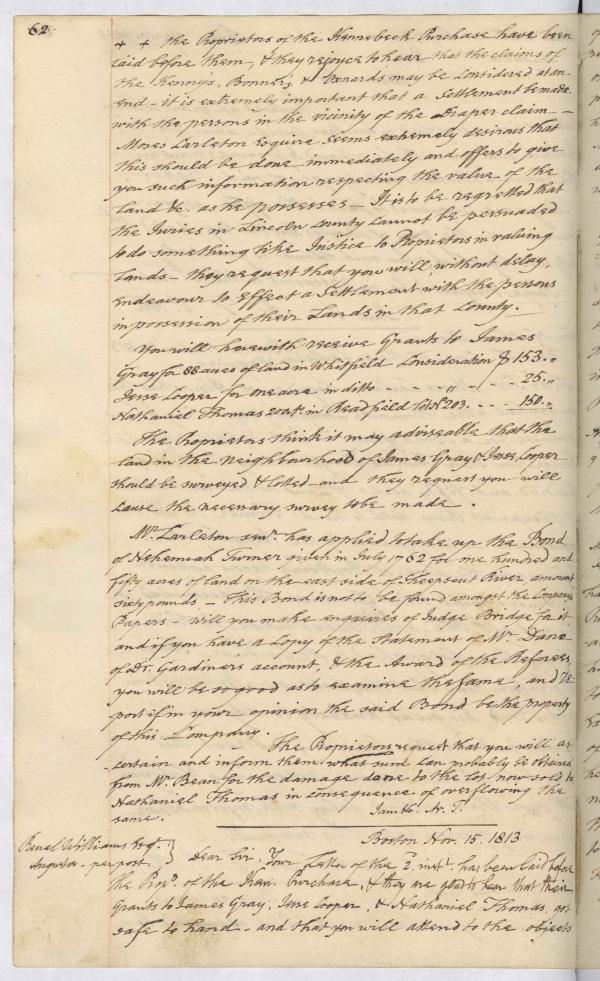 62
+ + the Proprietors of the Kennebeck Purchase have been
laid before them, & they rejoyce to hear that the claims of
the Kenny's, Bonner's & may be Considered at an
end – it is extremely important that a Settlement be made
with the persons in the vicinity of the Draper claim –
Moses Carleton Esquire seems extremely desirous that
this should be done immediately and offers to give
you such information respecting the value of the
land &c. as he possesses – It is to be regretted that
the Juries in Lincoln County cannot be persuaded
to do something like Justice to Proprietors in valuing
Lands – they request that you will, without delay,
endeavour to effect a Settlement with the persons
in possession of their Lands in that County.
You will herewith receive Grants to James
Gray for 88 acres of land in Whitefield Consideration $ 153.„
Jesse Cooper for one acre in ditto - - - „ - - - 25.„
Nathaniel Thomas 200 As. in Readfield Lot No. 203. - - - 150.„
The Proprietors think it may adviseable that the
land in the neighbourhood of James Gray & Jesse Cooper
should be surveyed & lotted – and they request you will
cause the necessary survey to be made.
Mr. Carleton senr. has applied to take up the Bond
of Nehemiah Turner given in July 1762 for one hundred and
fifty acres of land on the east side of Sheepscut River, amount
sixty pounds – This Bond is not to be found amongst the Company's
Papers – will you make enquiries of Judge Bridge for it
and if you have a Copy of the Statement of Mr. Dane
of Dr. Gardiners account, & the Award of the Referees,
you will be so good as to examine the same, and re-
port if in your opinion the said Bond be the property
of this Company.
The Proprietors request that you will as-
certain and inform them what sum can probably be obtained
from Mr. Bean for the damage done to the Lot now sold to
Nathaniel Thomas in consequence of overflowing the
same.
I am &c. A. T.
Boston Nov. 15. 1813
Reuel Williams Esqr.
Augusta – per post.
Dear Sir, Your Letter of the 2 inst. has been laid before
the Propr. of the Ken. Purchase, & they are glad to hear that their
Grants to James Gray, Jesse Cooper, & Nathaniel Thomas, got
safe to hand – and that you will attend to the objects